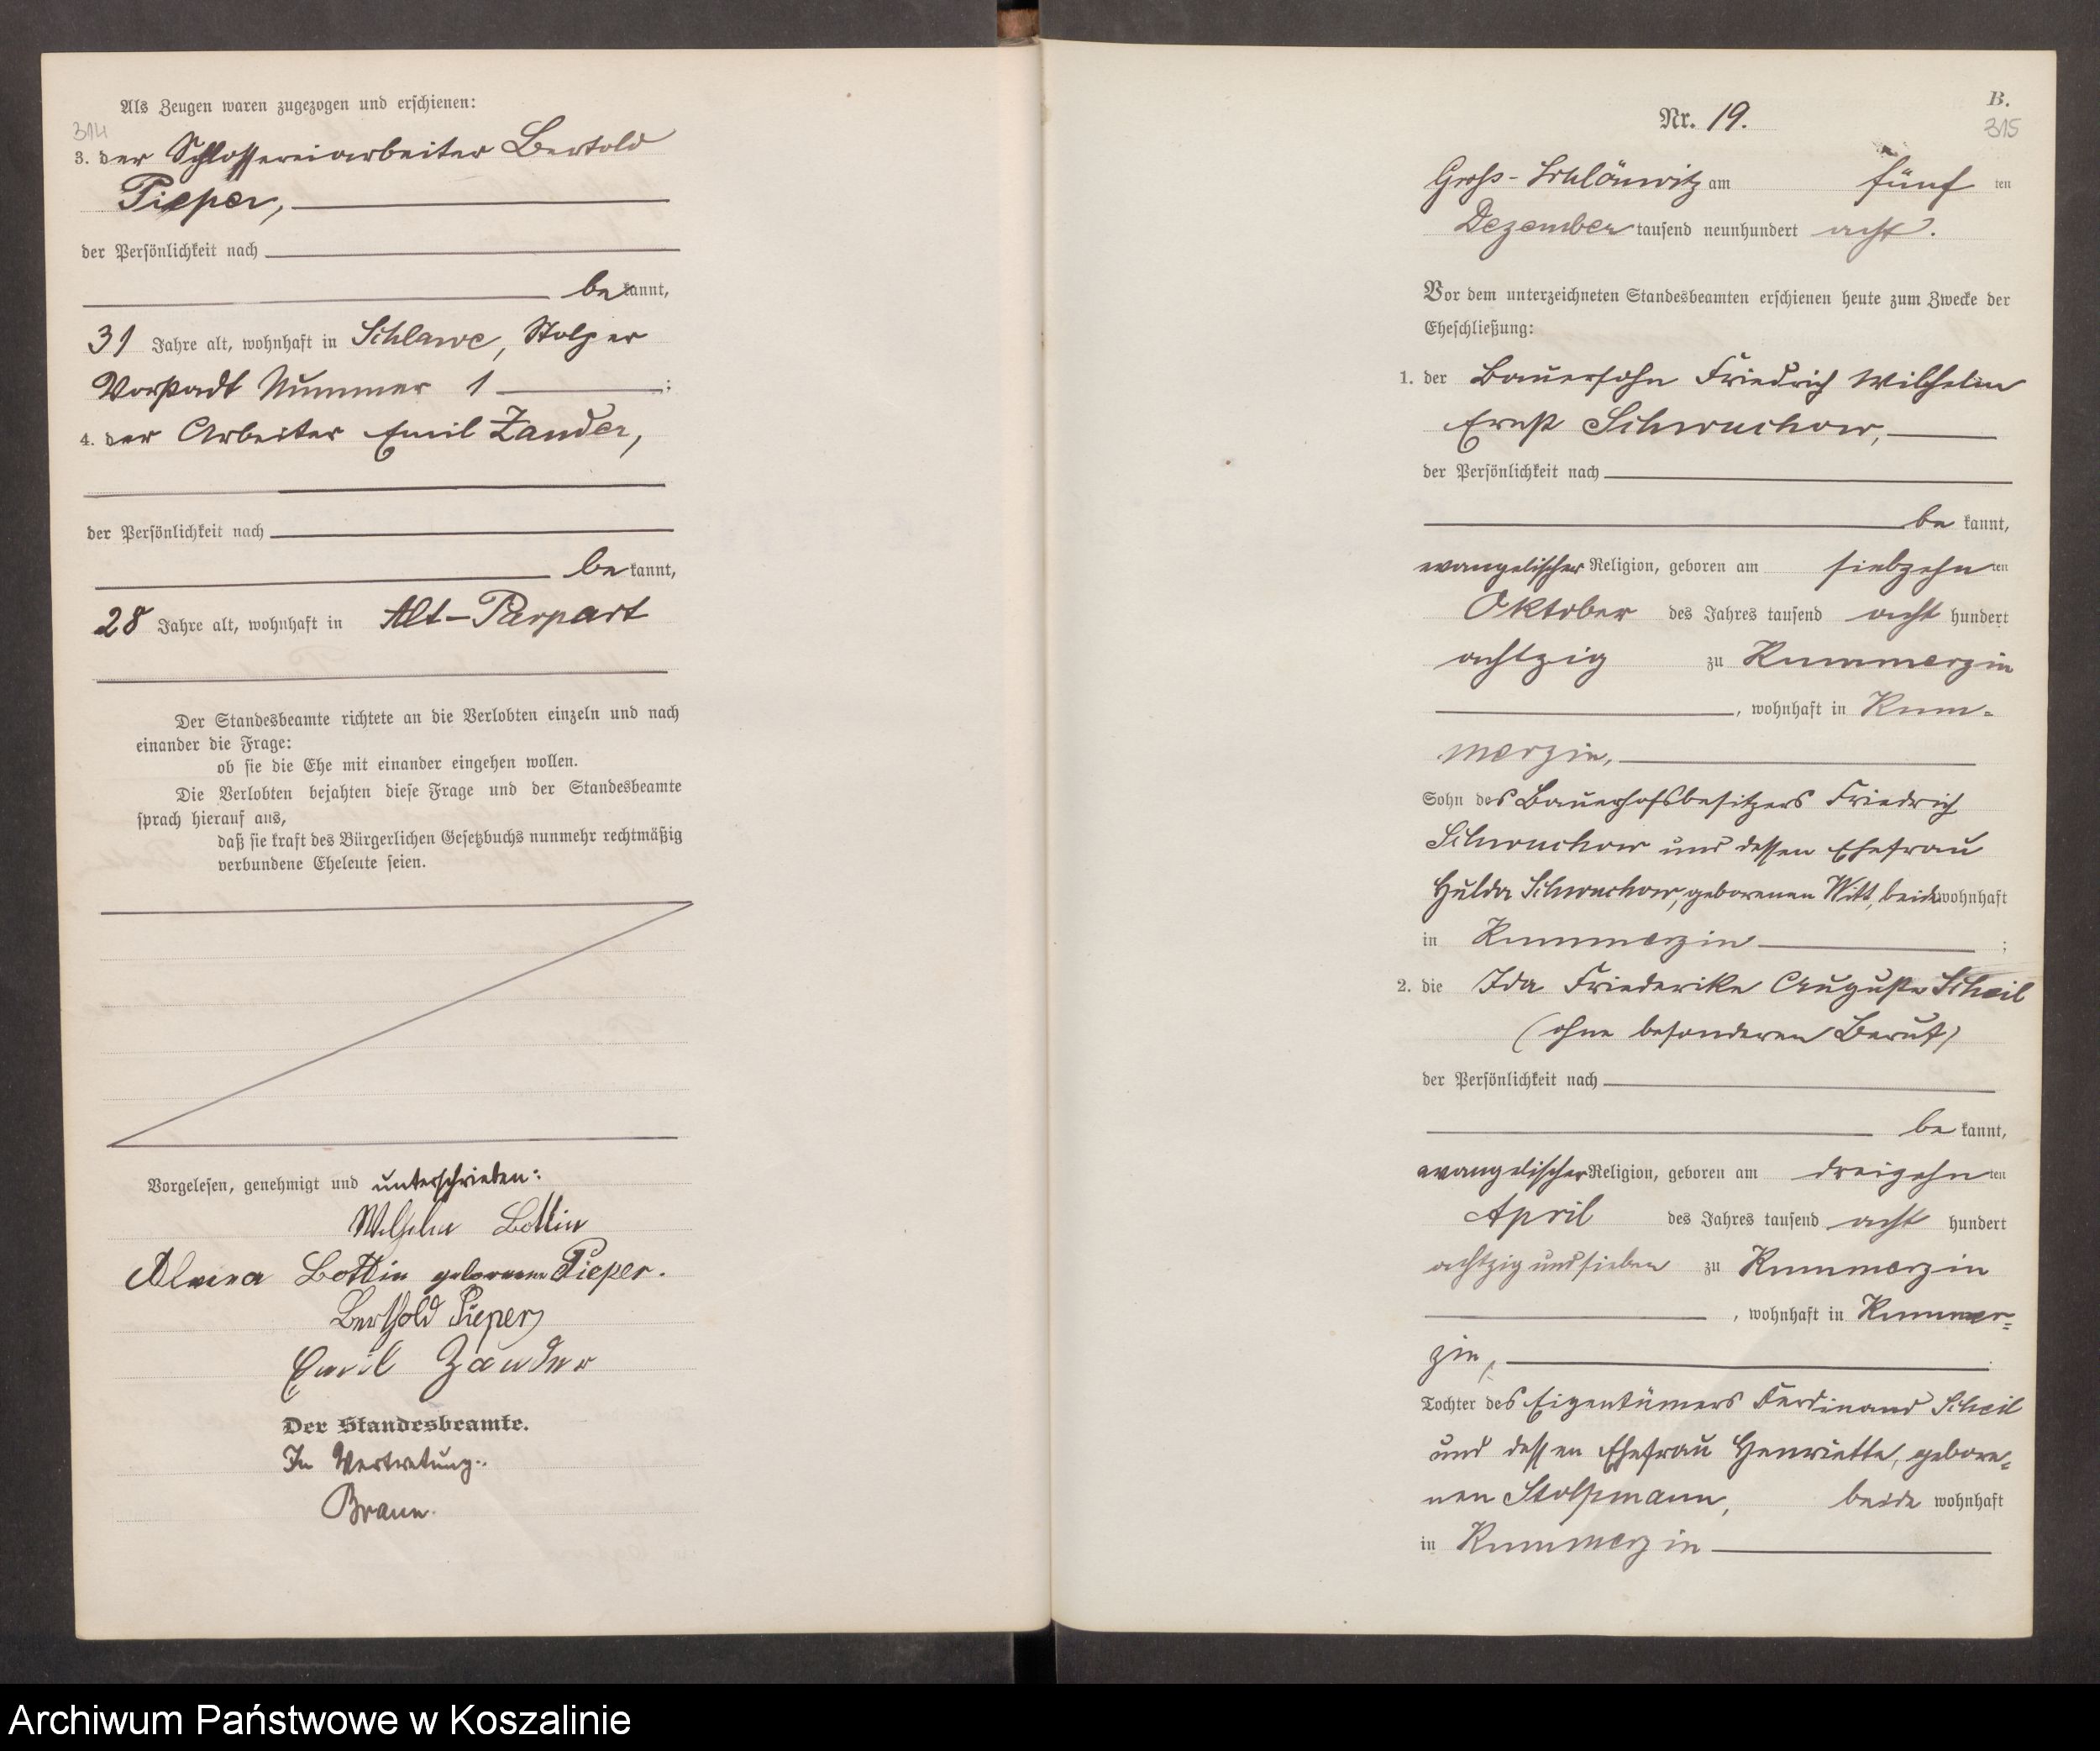 Als Zeugen waren zugezogen und erschienen:
314
3. der Schlossereiarbeiter Bertold
Pieper,
der Persönlichkeit nach
be kannt,
31 Jahre alt, wohnhaft in Schlawe, Stolper
Vorstadt Nummer 1 ;
4. der Arbeiter Emil Zander,
der Persönlichkeit nach
be kannt,
28 Jahre alt, wohnhaft in Alt-Parpart
Der Standesbeamte richtete an die Verlobten einzeln und nach
einander die Frage:
ob sie die Ehe mit einander eingehen wollen.
Die Verlobten bejahten diese Frage und der Standesbeamte
sprach hierauf aus,
daß sie kraft des Bürgerlichen Gesetzbuchs nunmehr rechtmäßig
verbundene Eheleute seien.
Vorgelesen, genehmigt und unterschrieben:
Wilhelm Bottin
Alwina Bottin geborene Pieper.
Berthold Pieper
Emil Zander
Der Standesbeamte.
In Vertretung.
Braun.
B.
315
Nr. 19.
Gross-Schlönwitz am fünf ten
Dezember tausend neunhundert acht.
Vor dem unterzeichneten Standesbeamten erschienen heute zum Zwecke der
Eheschließung:
1. der Bauersohn Friedrich Wilhelm
Ernst Schwuchow,
der Persönlichkeit nach
be kannt,
evangelischer Religion, geboren am siebzehn ten
Oktober des Jahres tausend acht hundert
achtzig zu Kummerzin
, wohnhaft in Kum-
merzin,
Sohn des Bauerhofsbesitzers Friedrich
Schwuchow und dessen Ehefrau
Hulda Schwuchow, geborenen Witt, beide wohnhaft
in Kummerzin ;
2. die Ida Friederike Auguste Scheil
(ohne besonderen Beruf)
der Persönlichkeit nach
be kannt,
evangelischer Religion, geboren am dreizehn ten
April des Jahres tausend acht hundert
achtzig und sieben zu Kummerzin
, wohnhaft in Kummer-
zin,
Tochter des Eigentümers Ferdinand Scheil
und dessen Ehefrau Henriette, gebore-
nen Stolpmann, beide wohnhaft
in Kummerzin
Archiwum Państwowe w Koszalinie